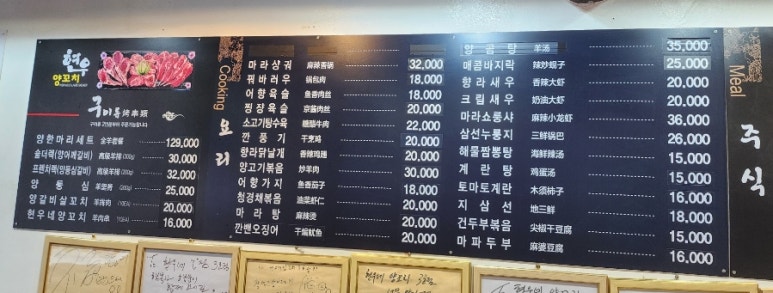 현우
양꼬치
구이류 烤串类
양한마리세트 全羊套餐 129,000
숄더랙(양어깨갈비) 高级羊排 (200g) 30,000
프렌치랙(양등심갈비) 高级羊排 (200g) 32,000
양등심 羊里脊 (200g) 25,000
양갈비살꼬치 羊排肉 (10EA) 20,000
현우네양꼬치 羊肉串 (10EA) 16,000
Cooking 요리
마라샹궈 麻辣香锅 32,000
꿔바러우 锅包肉 18,000
어향육슬 鱼香肉丝 18,000
찡장육슬 京酱肉丝 20,000
소고기탕수육 糖醋牛肉 22,000
깐풍기 干烹鸡 20,000
향라닭날개 香辣鸡翅 20,000
양고기볶음 炒羊肉 30,000
어향가지 鱼香茄子 18,000
청경채볶음 油菜虾仁 20,000
마라탕 麻辣烫 20,000
깐밴오징어 干煸鱿鱼 20,000
양곰탕 羊汤 35,000
매콤바지락 辣炒蚬子 25,000
향라새우 香辣大虾 20,000
크림새우 奶油大虾 20,000
마라쇼룽샤 麻辣小龙虾 36,000
삼선누룽지 三鲜锅巴 26,000
해물짬뽕탕 海鲜辣汤 15,000
계란탕 鸡蛋汤 15,000
토마토계란 木须柿子 16,000
지삼선 地三鲜 18,000
건두부볶음 尖椒干豆腐 15,000
마파두부 麻婆豆腐 16,000
Meal 주식